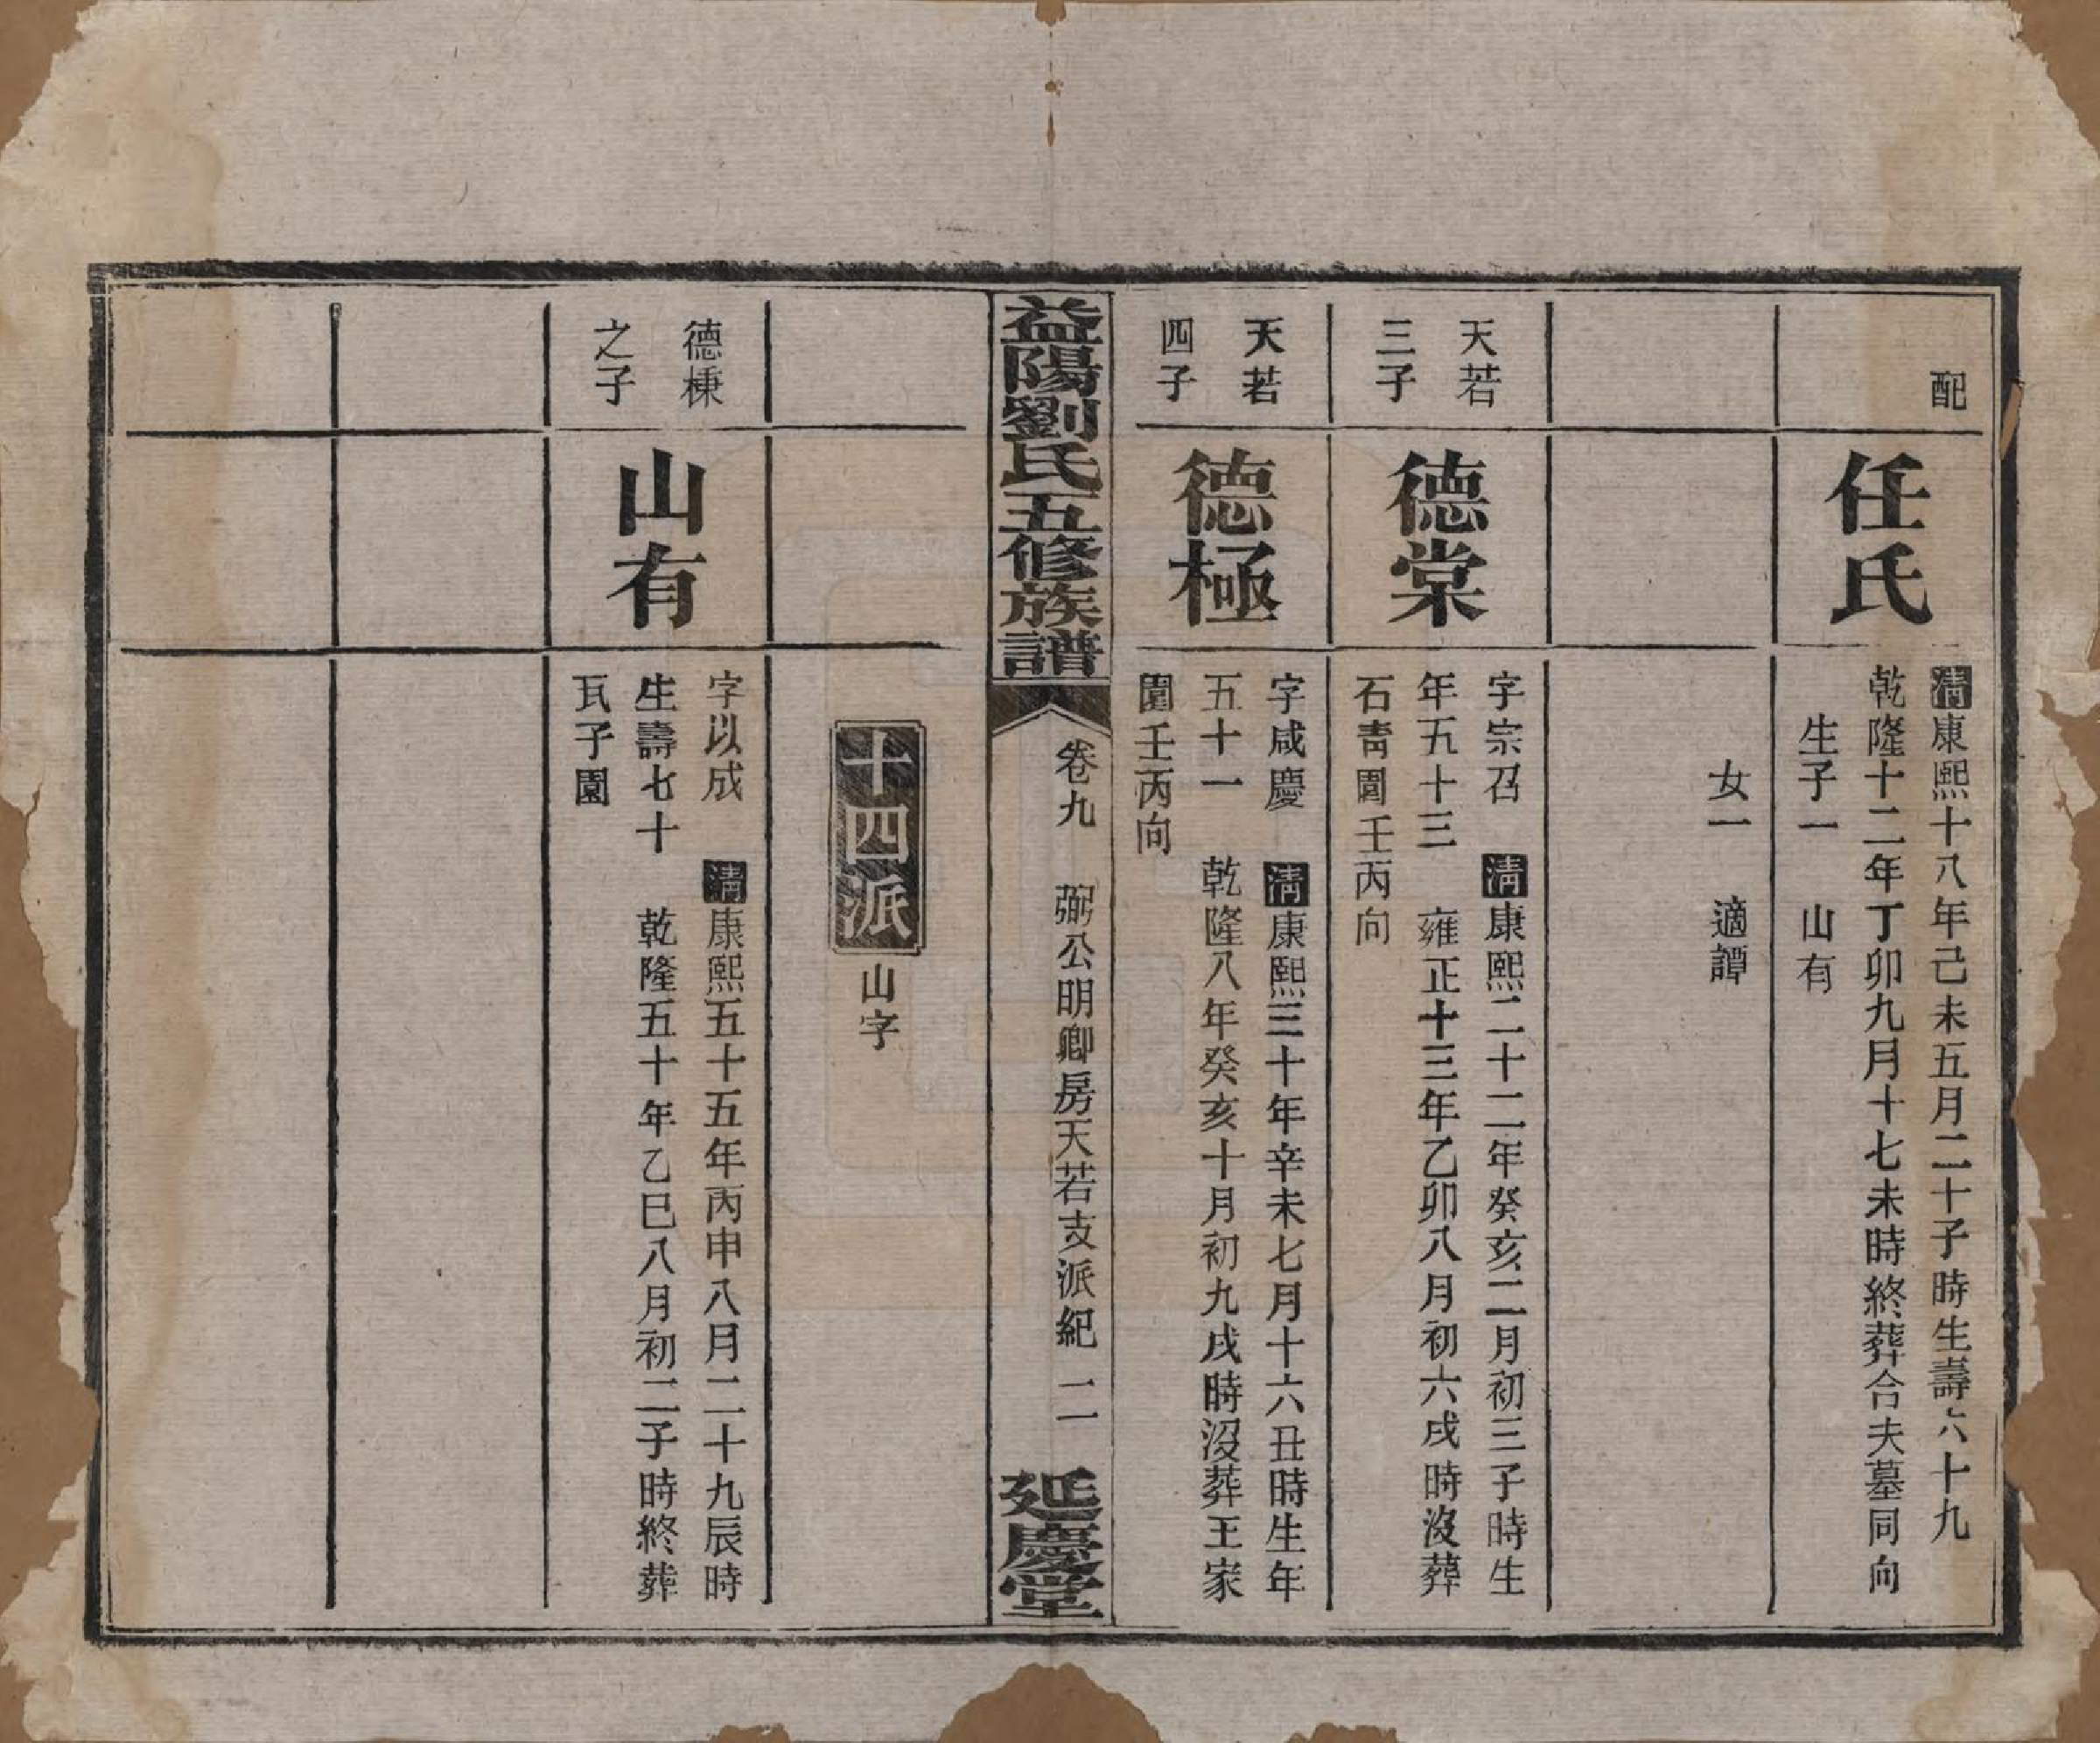 配
任氏
清康熙十八年己未五月二十子時生壽六十九
乾隆十二年丁卯九月十七未時終葬合夫墓同向
生子一　山有
女一　適譚
天若
三子
德棠
字宗召　清康熙二十二年癸亥二月初三子時生
年五十三　雍正十三年乙卯八月初六戌時沒葬
石青園壬丙向
天若
四子
德極
字咸慶　清康熙三十年辛未七月十六丑時生年
五十一　乾隆八年癸亥十月初九戌時沒葬王家
園壬丙向
益陽劉氏五修族譜
卷九　弼公明卿房天若支派紀　二
延慶堂
十四派　山字
德棟
之子
山有
字以成　清康熙五十五年丙申八月二十九辰時
生壽七十　乾隆五十年乙巳八月初二子時終葬
瓦子園